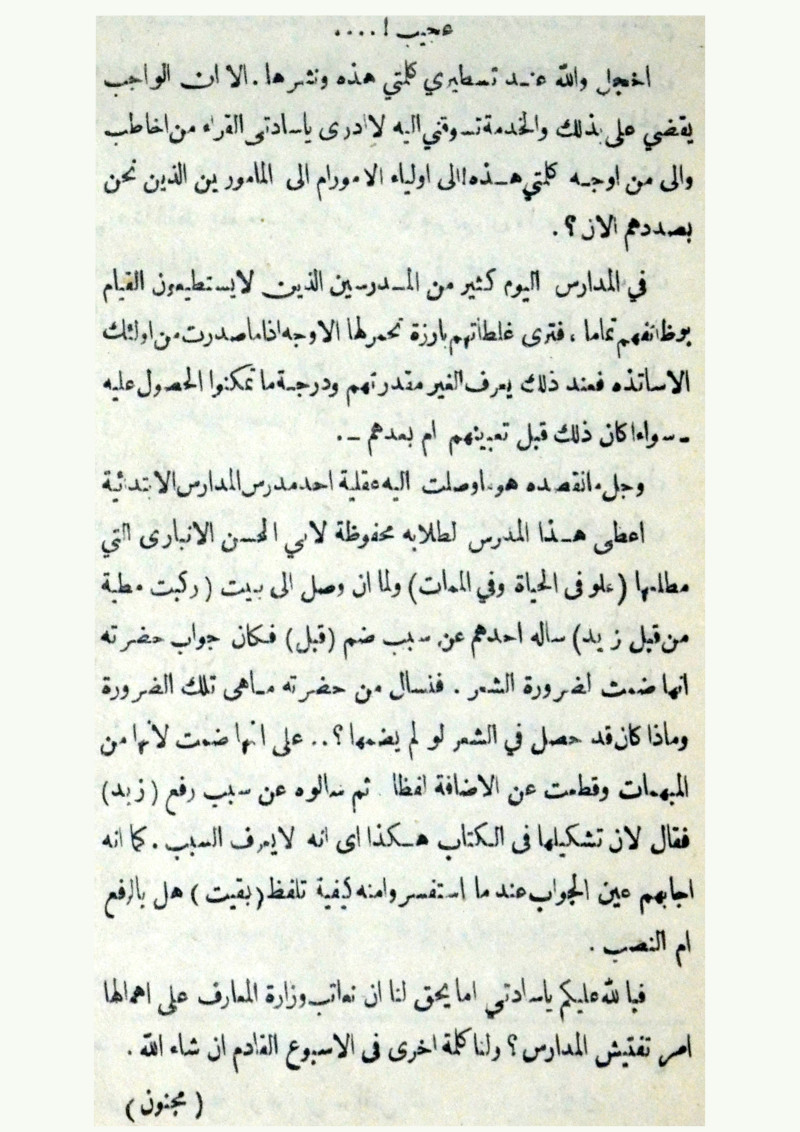 عجيب !....
اخجل والله عند تسطيري كلمتي هذه ونشرها . الا ان الواجب
يقضي على بذلك والخدمة تسوقني اليه لا ادرى ياسادتى القراء من اخاطب
والى من اوجه كلمتي هذه االى اولياء الامورام الى المامورين الذين نحن
بصددهم الان ؟ .
في المدارس اليوم كثير من المدرسين الذين لايستطيعون القيام
بوظائفهم تماما ، فترى غلطاتهم بارزة تحمرلها الاوجه اذاما صدرت من اولئك
الاساتذه فعند ذلك يعرف الغير مقدرتهم ودرجة ما تمكنوا الحصول عليه
ـ سواءا كان ذلك قبل تعيينهم ام بعدهم ـ .
وجل مانقصده هو ماوصلت اليه عقلية احد مدرس المدارس الابتدائية
اعطى هذا المدرس لطلابه محفوظة لابي الحسن الانبارى التي
مطلعها (علو فى الحياة وفي الممات) ولما ان وصل الى بيت ( ركبت مطية
من قبل زيد) ساله احدهم عن سبب ضم (قبل) فكان جواب حضرته
انها ضمت لضرورة الشعر . فنسال من حضرته ماهى تلك الضرورة
وماذا كان قد حصل في الشعر لو لم يضمها ؟ .. على انها ضمت لأنها من
المبهمات وقطعت عن الاضافة لفظا . ثم سالوه عن سبب رفع ( زيد)
فقال لان تشكيلها فى الكتاب هكذا اى انه لايعرف السبب . كما انه
اجابهم عين الجواب عند ما استفسروا منه كيفية تلفظ ( بقيت ) هل بالرفع
ام النصب .
فبالله عليكم ياسادتي اما يحق لنا ان نعاتب وزارة المعارف على اهمالها
امر تفتيش المدارس ؟ ولنا كلمة اخرى فى الاسبوع القادم ان شاء الله .
( مجنون )